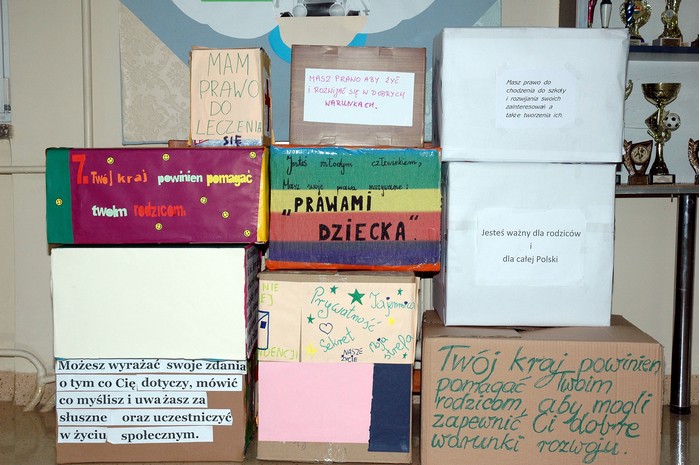 MAM
PRAWO
DO
LECZENIA
SIĘ
MASZ PRAWO ABY ŻYĆ
I ROZWIJAĆ SIĘ W DOBRYCH
WARUNKACH.
Masz prawo do
chodzenia do szkoły
i rozwijania swoich
zainteresowań a
także tworzenia ich.
7. Twój kraj powinien pomagać
twoim rodzicom.
Jesteś młodym człowiekiem,
Masz swoje prawa nazywane:
„PRAWAMI
DZIECKA"
Jesteś ważny dla rodziców
i
dla całej Polski
NIE
Prywatność
Tajemnica
Sekret
moja strefa
NASZE
życie
Możesz wyrażać swoje zdania
o tym co Cię dotyczy, mówić
co myślisz i uważasz za
słuszne oraz uczestniczyć
w życiu społecznym.
Twój kraj powinien
pomagać Twoim
rodzicom, aby mogli
zapewnić Ci dobre
warunki rozwoju.